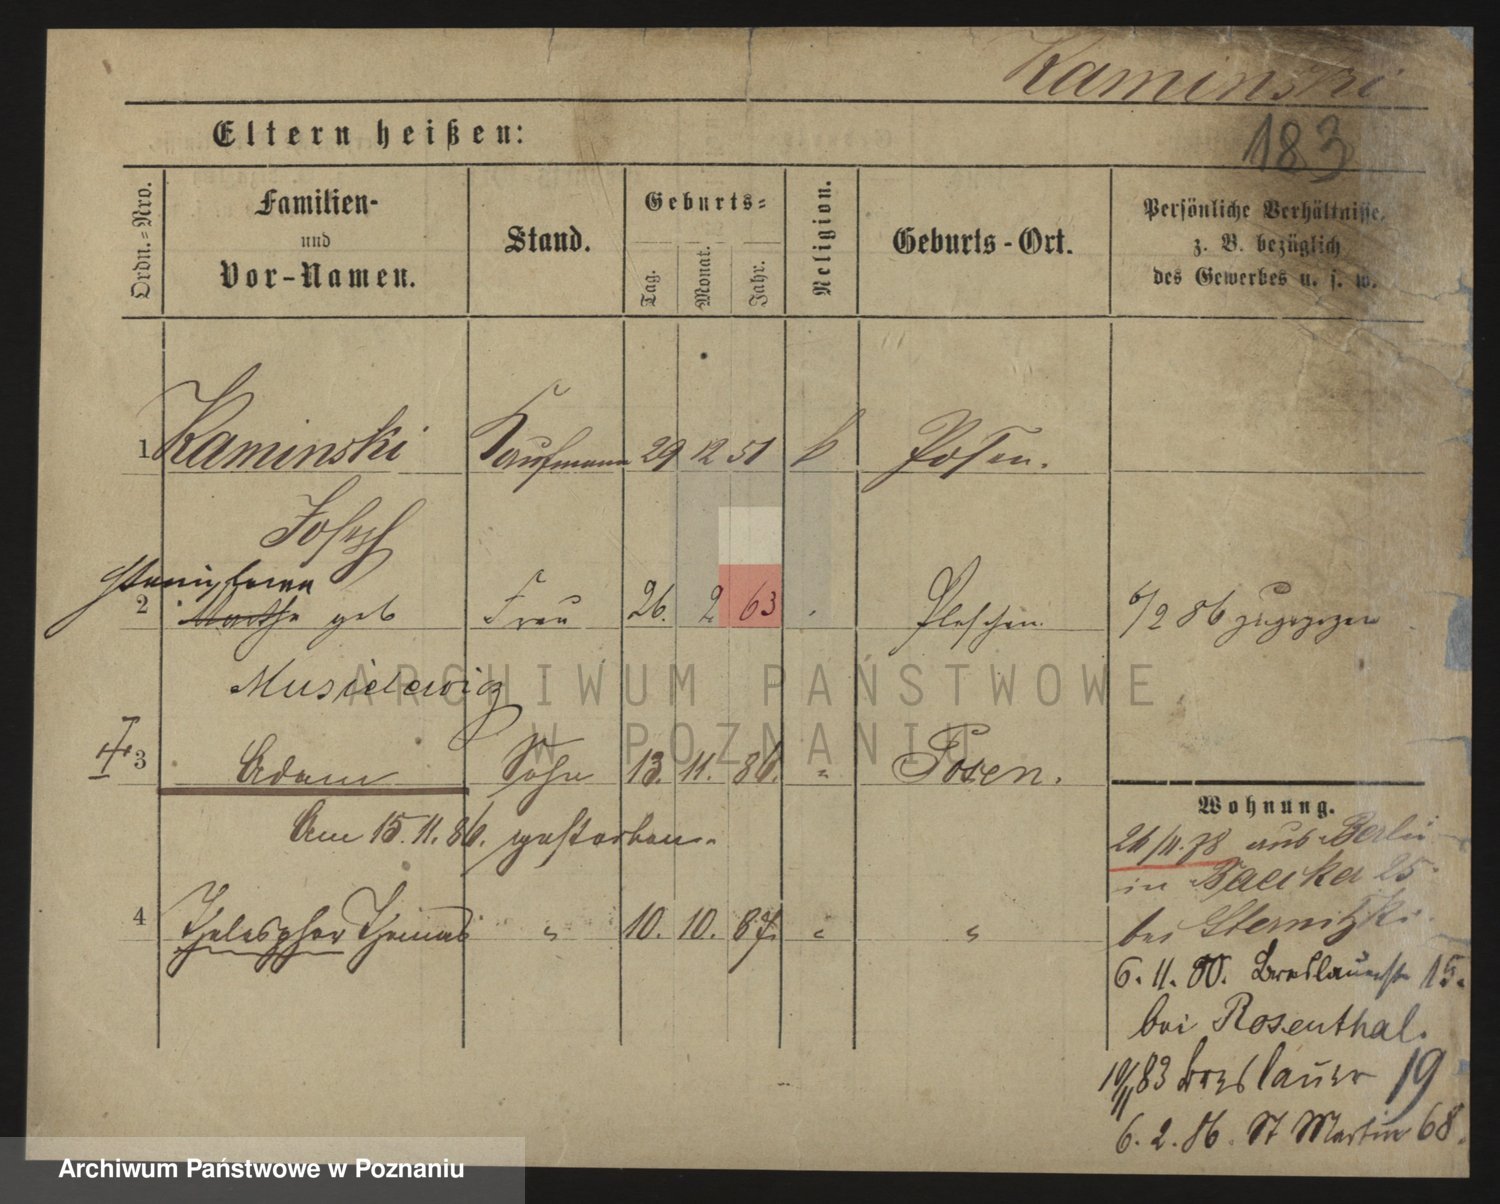 Kaminski
183
Eltern heißen:
Ordn.-Nro.
Familien-
und
Vor-Namen.
Stand.
Geburts-
Tag.
Monat.
Jahr.
Religion.
Geburts-Ort.
Persönliche Verhältnisse,
z. B. bezüglich
des Gewerbes u. s. w.
1 Kaminski Kaufmann 29 12 51 k Posen.
Joseph
2 geb Frau 26. 2 63 Pleschen 6/2 86 zugezogen
Musielewicz
3 Adam Sohn 13. 11. 86. " Posen.
Am 15.11.86. gestorben.
4 Thelesphor Thomas " 10. 10. 87. " "
Wohnung.
24/11.78 aus Berlin
in Baecker 25
bei Sternitzki.
6. 11. 80. Breslauerstr 15.
bei Rosenthal.
10/11 83 Breslauer 19
6. 2. 86. St Martin 68.
ARCHIWUM PAŃSTWOWE
W POZNANIU
Archiwum Państwowe w Poznaniu